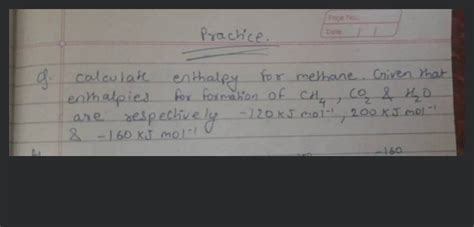 Page No.:
Date: / /
Practice.
Q. calculate enthalpy for methane. Given that
enthalpies for formation of CH4, CO2 & H2O
are respectively -120 KJ mol-1, 200 KJ mol-1
& -160 KJ mol-1
-160